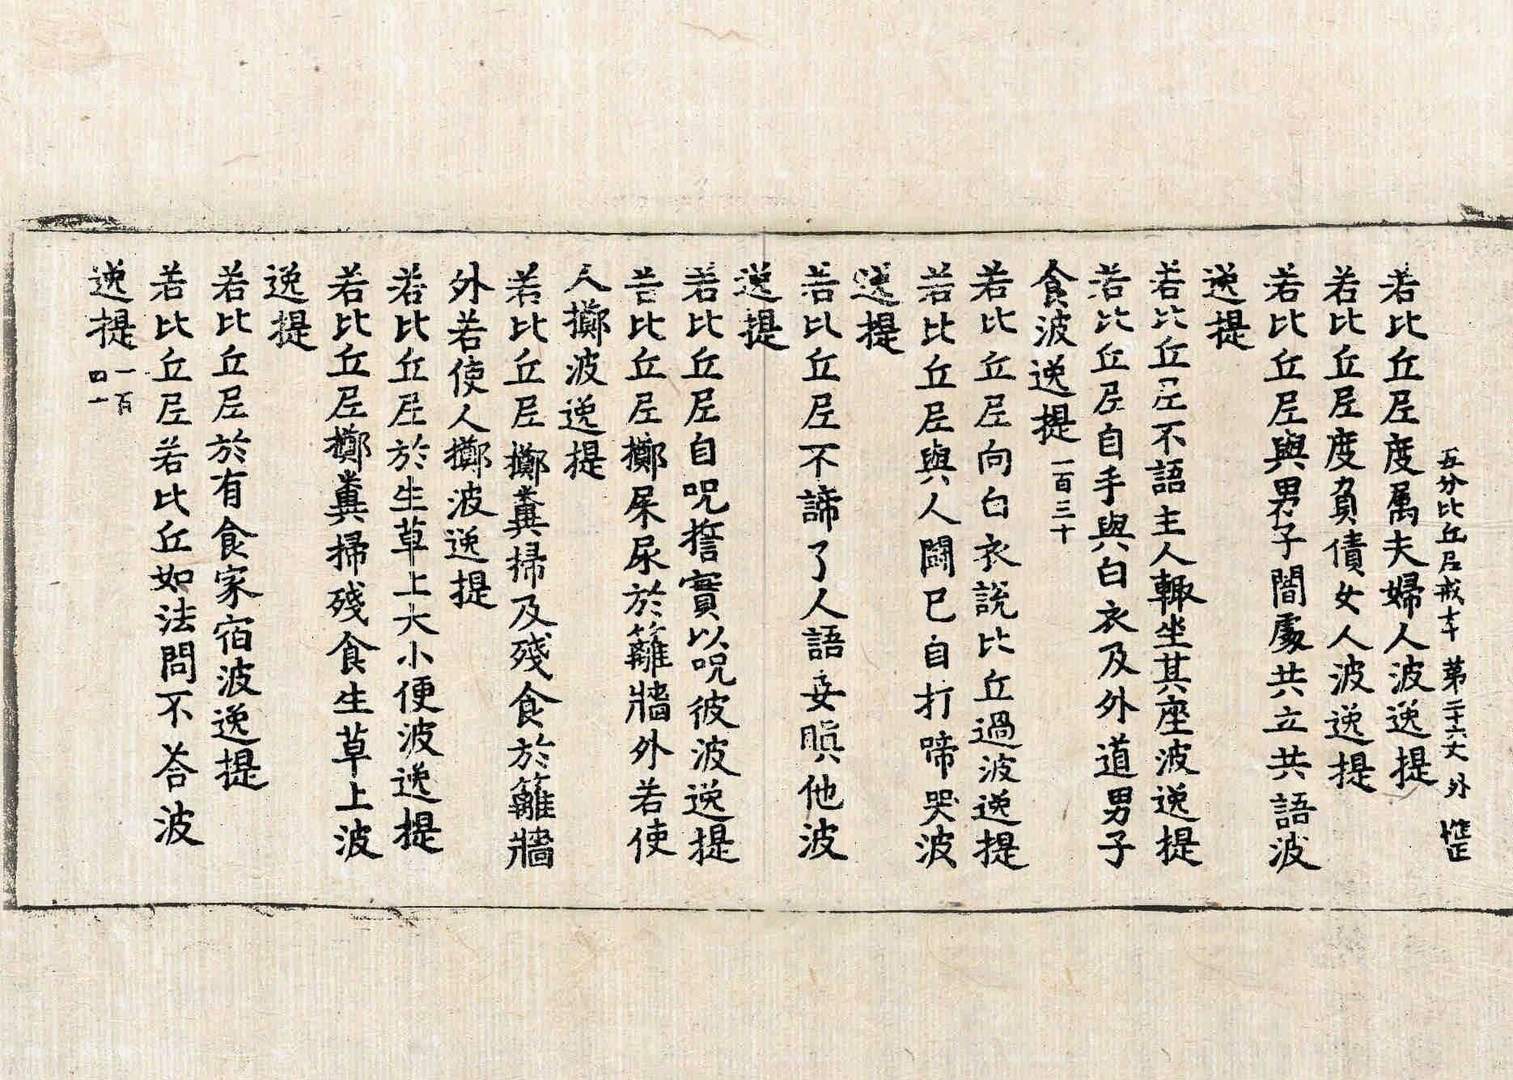 五分比丘尼戒本 第二十六丈 外
若比丘尼度属夫婦人波逸提
若比丘尼度負債女人波逸提
若比丘尼與男子闇處共立共語波
逸提
若比丘尼不語主人輙坐其座波逸提
若比丘尼自手與白衣及外道男子
食波逸提 一百三十
若比丘尼向白衣說比丘過波逸提
若比丘尼與人鬪已自打啼哭波
逸提
若比丘尼不諦了人語妄瞋他波
逸提
若比丘尼自呪誓實以呪彼波逸提
若比丘尼擲屎尿於籬牆外若使
人擲波逸提
若比丘尼擲糞掃及殘食於籬牆
外若使人擲波逸提
若比丘尼於生草上大小便波逸提
若比丘尼擲糞掃殘食生草上波
逸提
若比丘尼於有食家宿波逸提
若比丘尼若比丘如法問不荅波
逸提 一百四一